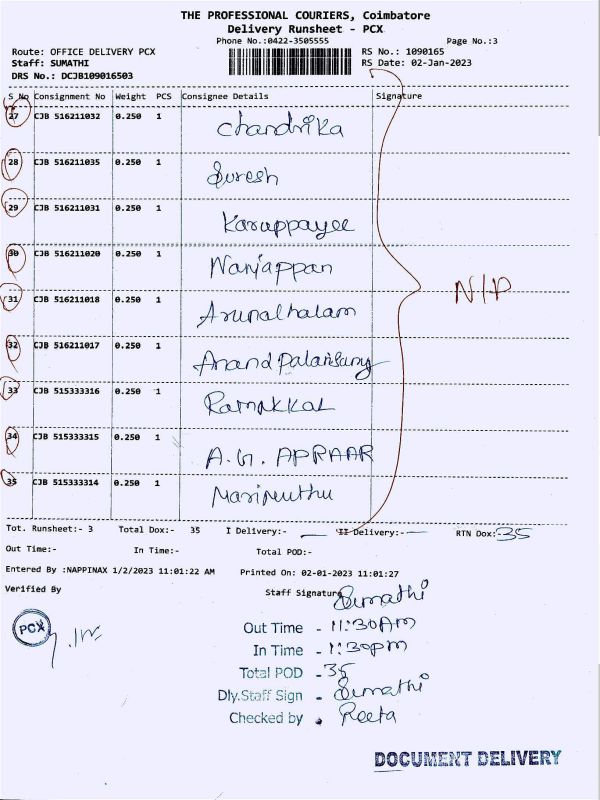 THE PROFESSIONAL COURIERS, Coimbatore
Delivery Runsheet - PCX
Phone No.:0422-3505555 Page No.:3
Route: OFFICE DELIVERY PCX RS No.: 1090165
Staff: SUMATHI RS Date: 02-Jan-2023
DRS No.: DCJB109016503
S No Consignment No Weight PCS Consignee Details Signature
27 CJB 516211032 0.250 1 Chandrika
28 CJB 516211035 0.250 1 Suresh
29 CJB 516211031 0.250 1 Karuppayee
30 CJB 516211020 0.250 1 Nanjappan
N/P
31 CJB 516211018 0.250 1 Arunalhalam
32 CJB 516211017 0.250 1 Anand
33 CJB 515333316 0.250 1 Ramakkal
34 CJB 515333315 0.250 1 APRAAR
35 CJB 515333314 0.250 1
Tot. Runsheet:- 3 Total Dox:- 35 I Delivery:- II Delivery:- RTN Dox:-35
Out Time:- In Time:- Total POD:-
Entered By :NAPPINAX 1/2/2023 11:01:22 AM Printed On: 02-01-2023 11:01:27
Verified By Staff Signature Sumathi
PCX
Out Time - 11:30AM
In Time - 1:30pm
Total POD - 35
Dly.Staff Sign - Sumathi
Checked by . Reeta
DOCUMENT DELIVERY